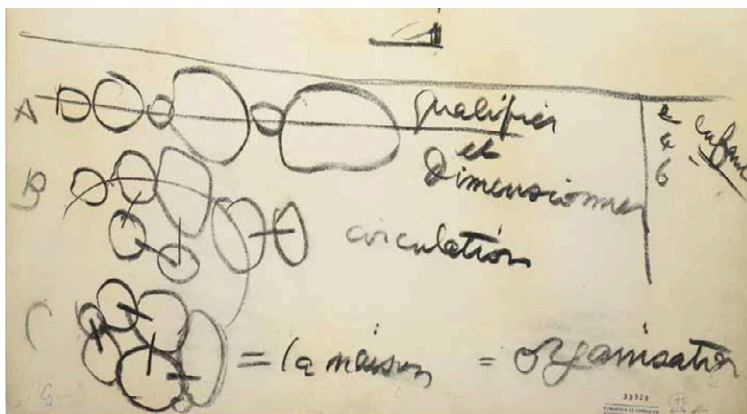 A
qualifier
et
Dimensionner
2
4
6
enfants
B
circulation
C
= la maison = organisation
33520